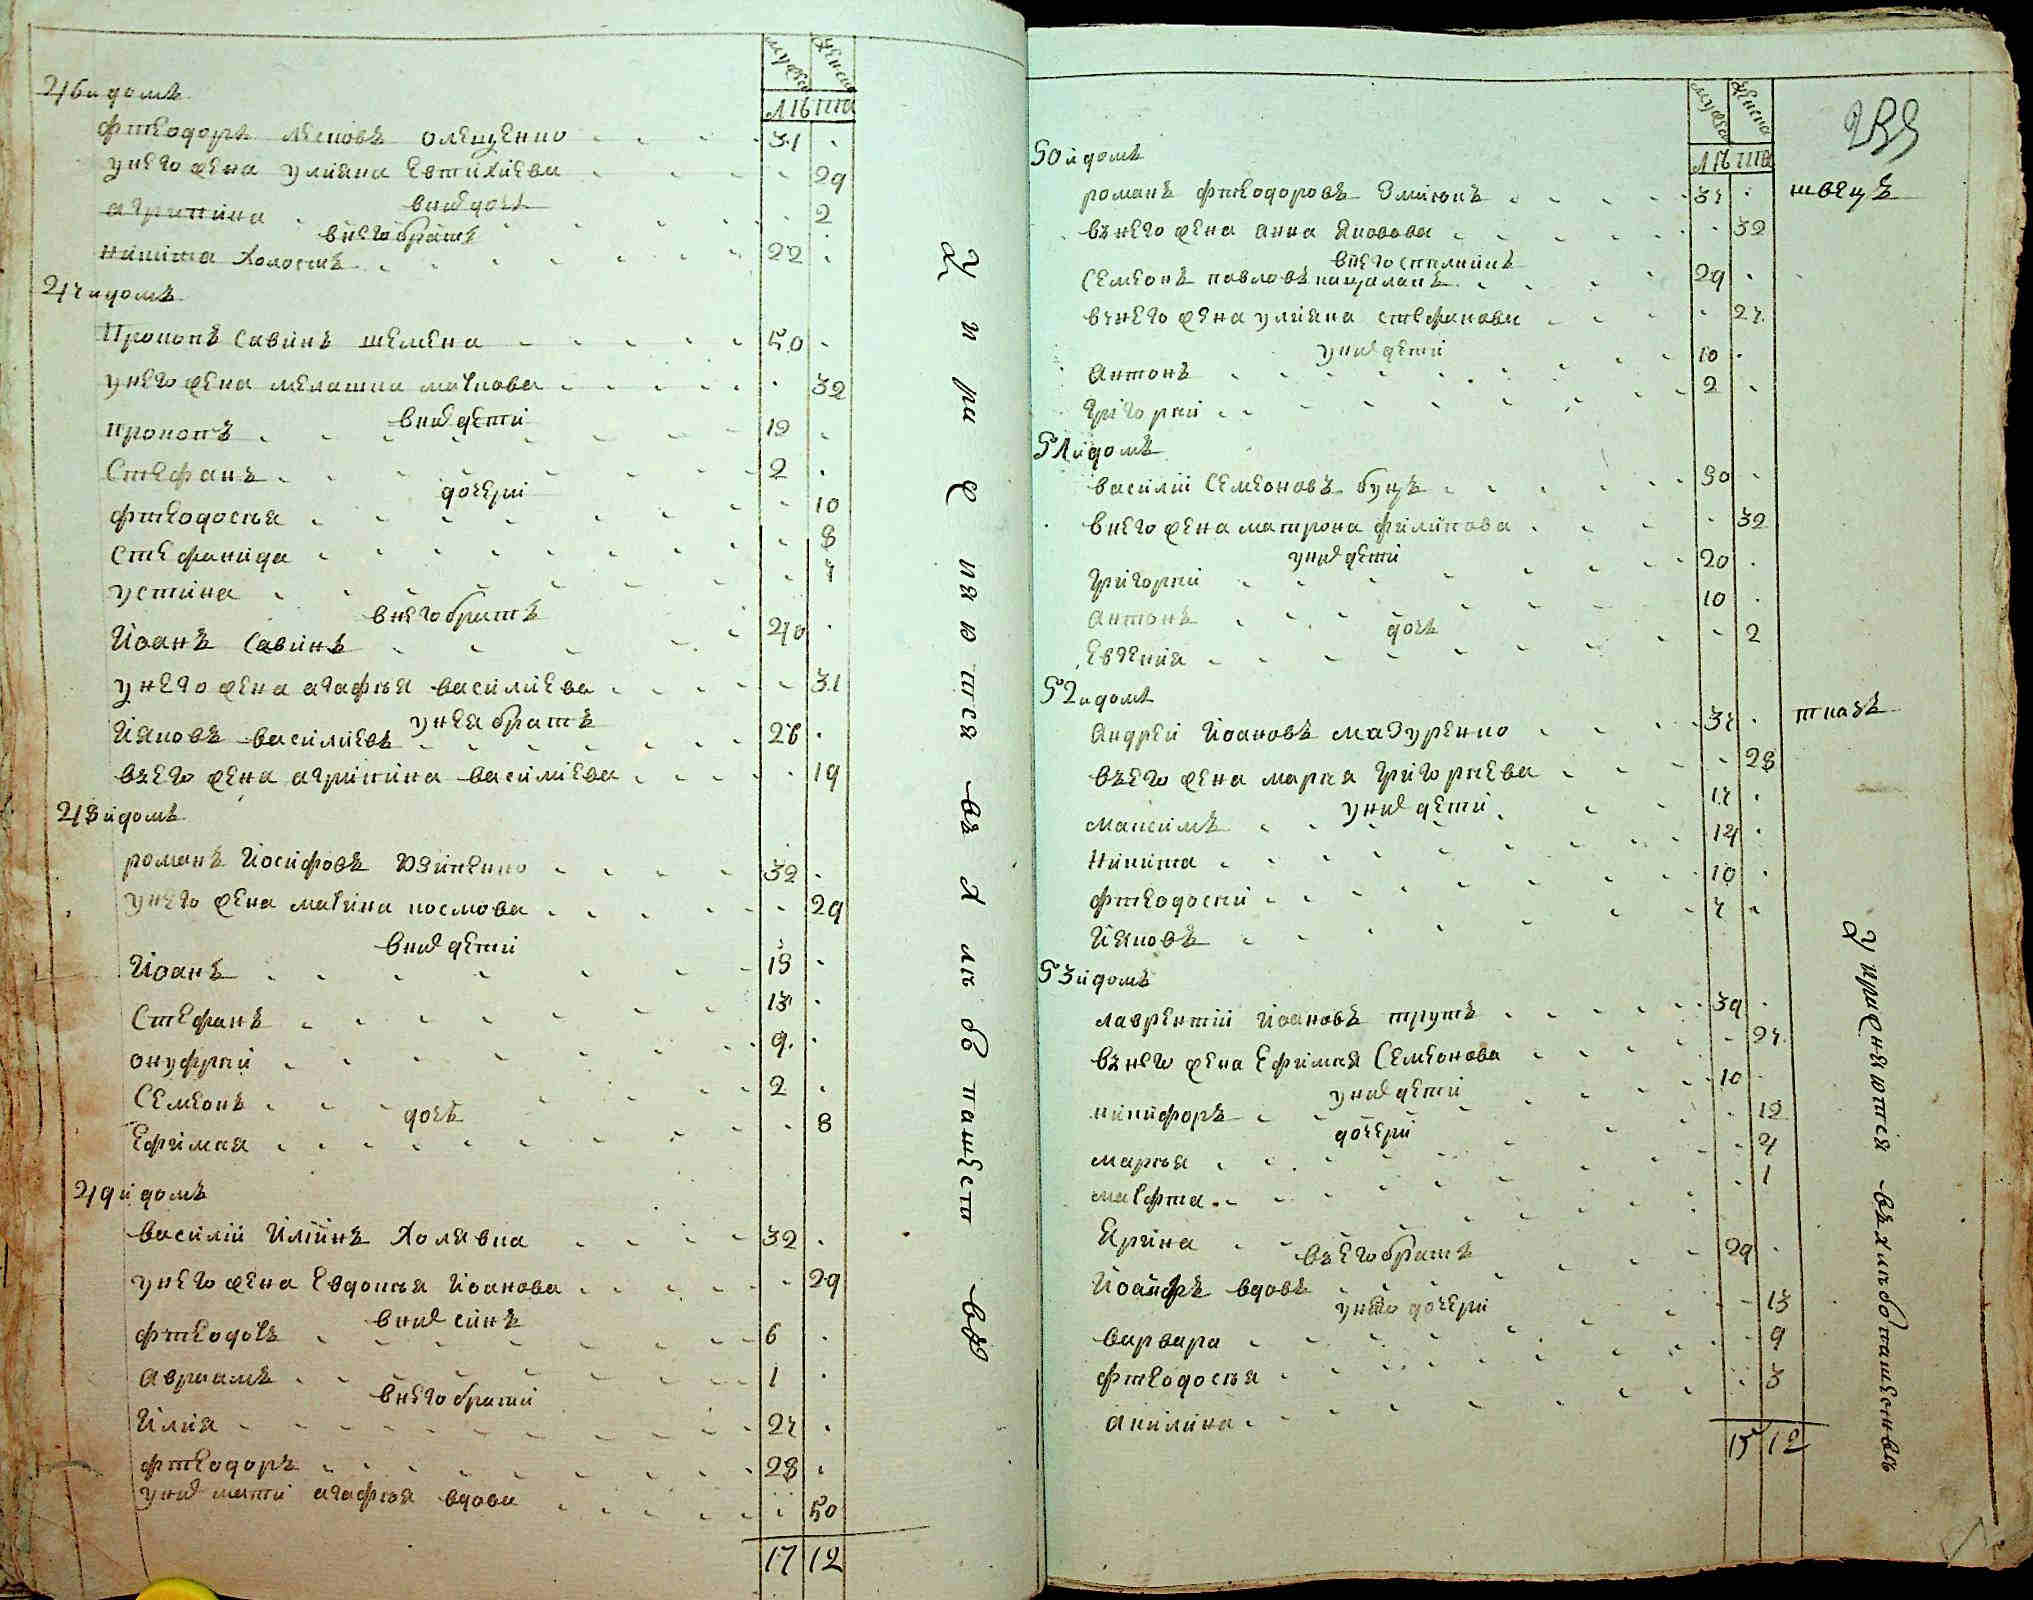 мужеска женска
лѣта
46 й домъ
Фтеодоръ Лесковъ Олещенко 31
у него жена Улияна Евтихиева 29
в них дочь
Агрипина 2
в него братъ
Никита холостъ 22
47 й домъ
Прокопъ Савинъ Шемена 50
у него жена Мелашка Маркова 32
в них дети
Прокопъ 19
Стефанъ 2
дочери
Фтеодосия 10
Стефанида 8
Устина 7
в него братъ
Йоанъ Савинъ 40
у него жена Агафия Василиева 31
у нея братъ
Йяковъ Василиевъ 26
въ его жена Агрипина Василиева 19
48 й домъ
Романъ Йосифовъ 32
у него жена Космова 29
в них дети
Йоанъ 15
Стефанъ 13
Онуфрий 9
Семеонъ 2
дочь
Ефимия 8
49 й домъ
Василий Илиинъ Холявка 32
у него жена Евдокия Йоанова 29
в них синъ
Фтеодотъ 6
Авраамъ 1
в него брати
Илия 27
Фтеодоръ 28
у них мати Агафия вдова 50
17 12
У п р а ж няются въ хлѣбопашестве
мужеска женска
лѣта
50 й домъ
Романъ Фтеодоровъ Змиюкъ 37 швецъ
въ него жена Анна Яковова 32
в него
Семеонъ Павловъ 29
въ него жена Улияна Стефанова 27
у них дети
Антонъ 10
Григорий 2
51 й домъ
Василий Семеоновъ Буцъ 50
в него жена Матрона Филипова 32
у них дети
Григорий 20
Антонъ 10
дочь
Евгения 2
52 й домъ
Андрей Йоановъ Мазуренко 37 ткачъ
въ его жена Мария Григориева 28
у них дети
Максимъ 17
Никита 14
Фтеодосий 10
Йяковъ 7
53 й домъ
Лаврентий Йоановъ Трушъ 39
въ него жена Ефимия Семеонова 27
у них дети
Никифоръ 10
дочери
Мария 12
Марфта 4
Ярина 1
въ его братъ
вдовъ 29
у него дочери
Варвара 13
Фтеодосия 9
Акилина 3
15 12
Упражняются въ хлѣбопашествѣ